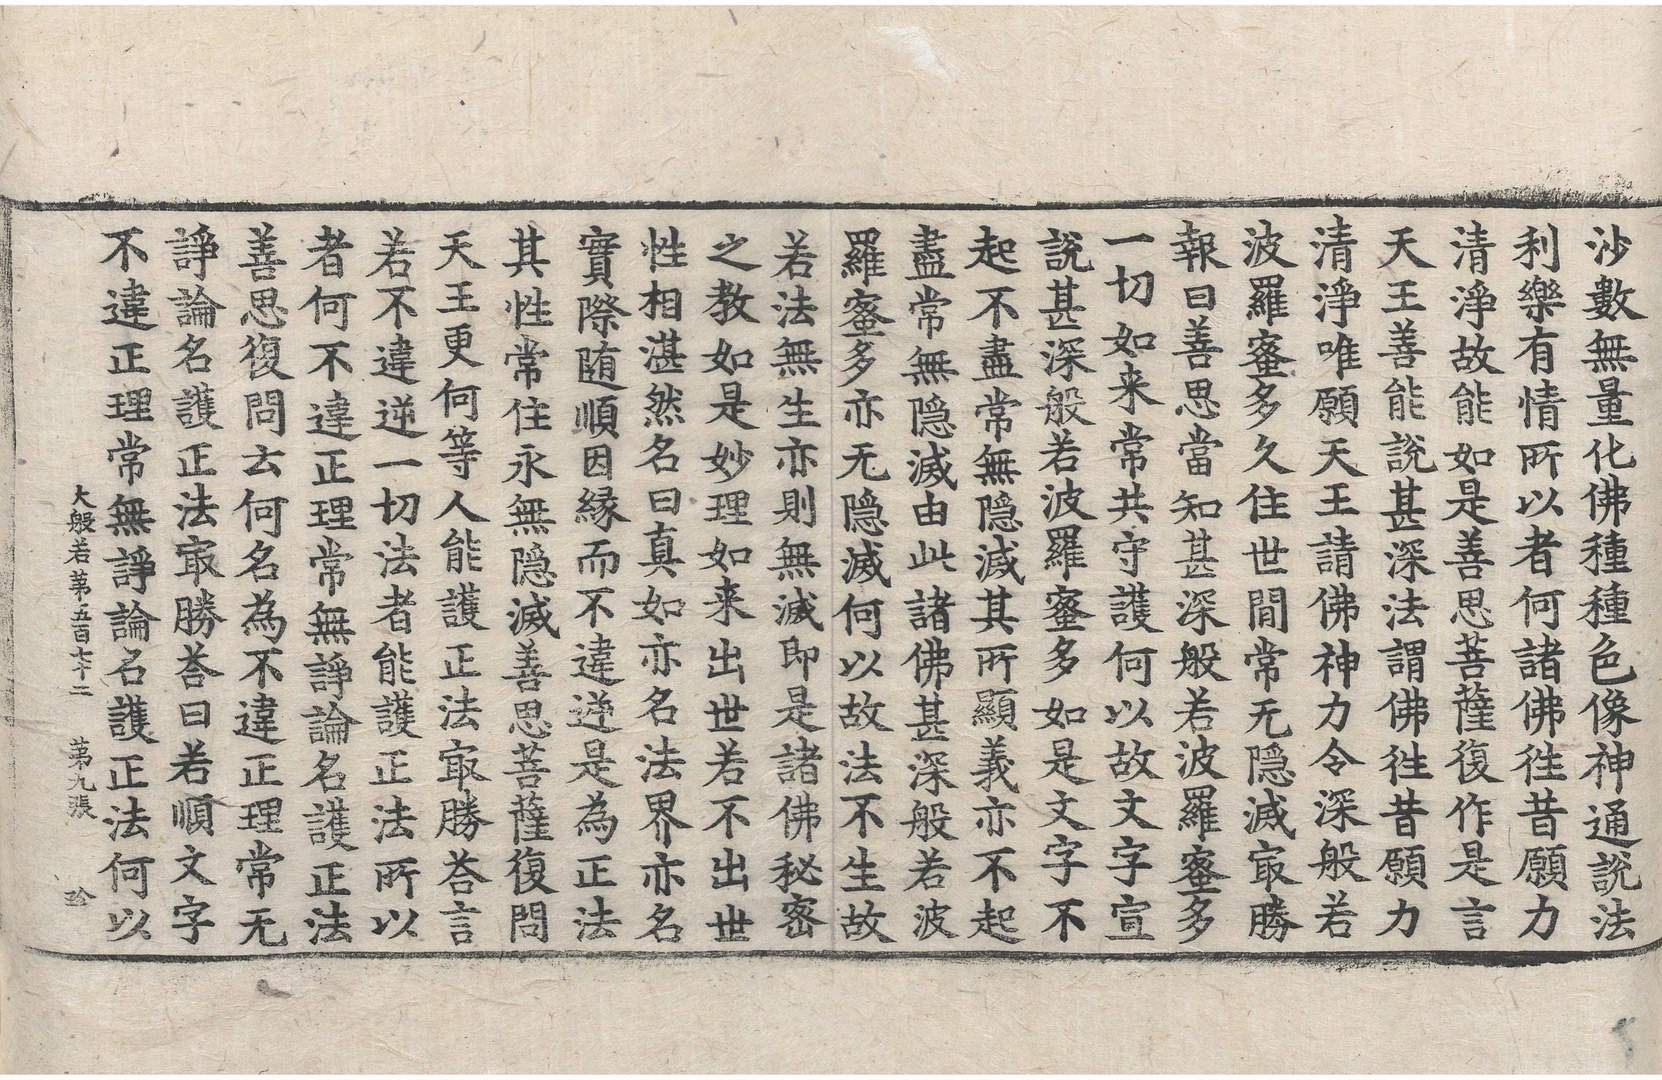 沙數無量化佛種種色像神通說法
利樂有情所以者何諸佛徃昔願力
清淨故能如是善思菩薩復作是言
天王善能說甚深法謂佛徃昔願力
清淨唯願天王請佛神力令深般若
波羅蜜多久住世間常无隠滅㝡勝
報曰善思當知甚深般若波羅蜜多
一切如来常共守護何以故文字宣
說甚深般若波羅蜜多如是文字不
起不盡常無隠滅其所顯義亦不起
盡常無隠滅由此諸佛甚深般若波
羅蜜多亦无隠滅何以故法不生故
若法無生亦則無滅即是諸佛秘密
之教如是妙理如来出世若不出世
性相湛然名曰真如亦名法界亦名
實際随順因縁而不違逆是為正法
其性常住永無隠滅善思菩薩復問
天王更何等人能護正法㝡勝荅言
若不違逆一切法者能護正法所以
者何不違正理常無諍論名護正法
善思復問云何名為不違正理常无
諍論名護正法㝡勝荅曰若順文字
不違正理常無諍論名護正法何以
大般若第五百七十二 第九張